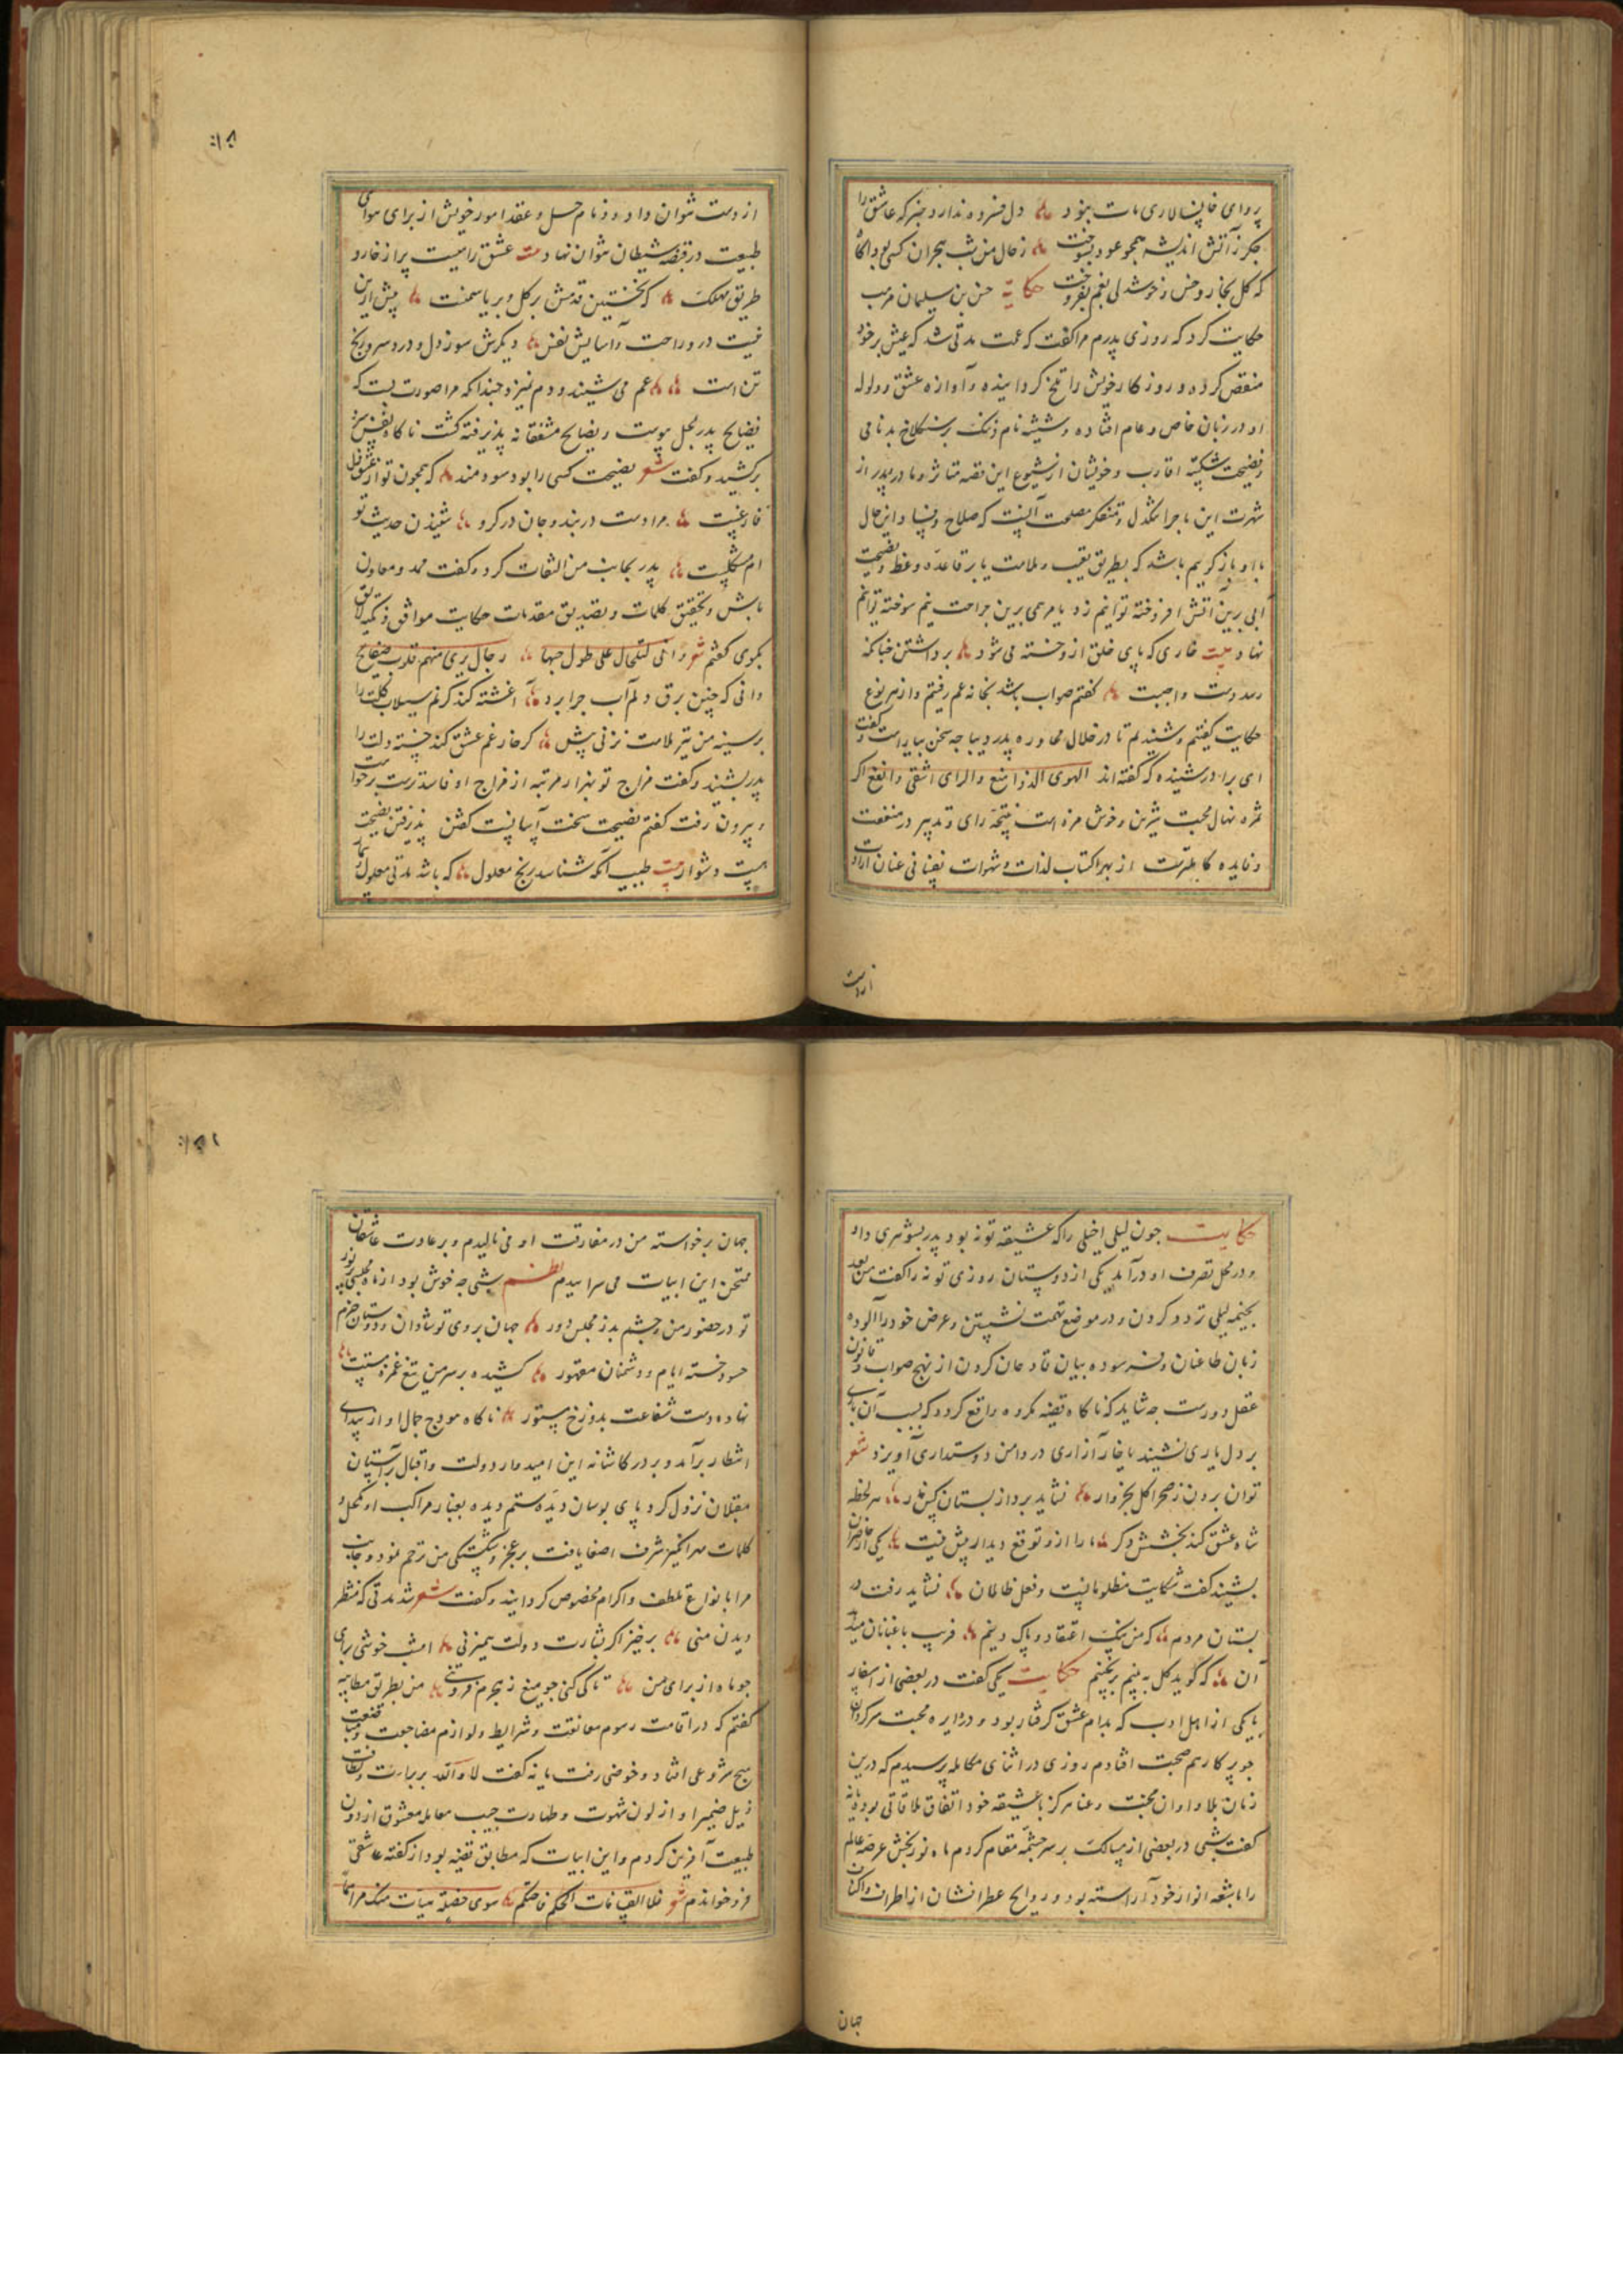 پروای خانسالاری مات بنود دل فسرده ندارد خبر که عاشق را
جکر ز آتش اندیشه همجو عود بسوخت ز حال من شب هجران کسی بود آگاه
که کل بخار و خس و خوشدلی بغم بفروخت حکایة حسن بن سلیمان مرتب
حکایت کرد که روزی پدرم مرا کفت که عمت مدتی شد که عیش بر خود
منغص کرده و روزکار خویش را تلخ کردانیده و آوازه عشق و ولوله
او در زبان خاص و عام افتاده و شیشه نام و ننک بر سنکلاخ بدنامی
و فضیحت شکسته اقارب و خویشان از شیوع این قصه متاثر و مادر و پدر از
شهرت این ماجرا تنکدل و متفکر مصلحت آنست که صلاح و فساد این حال
با او باز کریم باشد که بطریق تعیب و ملامت یا بر قاعده وعظ و نصیحت
آبی برین آتش افروخته توانیم زد یا مرهمی برین جراحت نیم سوخته توانیم
نهاد بیت خاری که پای خلق ازو خسته می شود برداشتن چنانکه
رسد دست واجبست کفتم صواب باشد بخانه عم رفتیم و از هر نوع
حکایت کفتیم و شنیدیم تا در خلال محاوره پدر دیباجه سخن بیاراست و کفت
ای برادر شنیده که کفته اند الهوی الذ و امتع والرای اشقی و انفع اکر
ثمره نهال محبت شیرین و خوش مزه است نتیجه رای و تدبیر در منفعت
و فایده کاملترست از بهر اکتساب لذات و شهوات نفسانی عنان ارادت
از دست
از دست نتوان داد و زمام حل و عقد امور خویش از برای هوای
طبیعت در قبضه شیطان نتوان نهاد عشق راهیست پر از خار و
طریق مهلک که نخستین قدمش بر کل و بر یاسمنت پیش ازین
نیست درو راحت و آسایش نفس دیکرش سوز دل و درد سر و رنج
تن است عم می شنید و دم نمیزد چندانکه مرا صورت بست که
نصایح پدر بمحل پیوست و نصایح مشفقانه پذیرفته کشت ناکاه نفس سرد
برکشید و کفت شعر نصیحت کسی را بود سودمند که همجون تو از عشق
فارغیست مرا دست در بند و جان در کرو شنیدن حدیث تو
ام مشکلیست پدر بجانب من التفات کرد و کفت ممد و معاون
باش و بتحقیق کلمات و تصدیق مقدمات حکایت موافق
بکوی کفتم شعر
دانی که چنین برق دلم آب چرا برد آغشته کند کرنم سیلاب
بر سینه من تیر ملامت نزنی پیش کر خار غم عشق کند خسته دلت را
پدر بشنید و کفت مزاج تو بهزار مرتبه از مزاج او فاسدترست برخواست
و بیرون رفت کفتم نصیحت سخت آسانست کفتن پذیرفتن نصیحت
هست دشوار طبیب آنکه شناسد رنج معلول که باشد مدتی معلول و بیمار
حکایت جون لیلی اخیلی را که عشیقه توبه بود پدر بشوهری داد
و در محل تصرف او درآمد یکی از دوستان روزی توبه را کفت من بعد
بخیمه لیلی تردد کردن و در موضع تهمت نشستن و عرض خود را آلوده
زبان طاعنان و فرسوده بیان قادحان کردن از نهج صواب و قانون
عقل دورست جه شاید که ناکاه قضیه مکروه واقع کردد که بسبب آن
بر دل یاری نشیند یا خار آزاری در دامن دوستداری آویزد شعر
توان بردن ز صحرا کل بخروار نشاید برد از بستان هر لحظه
شاه عشق کند بخشش دکر ما را ازو توقع دیدار پیش نیست یکی از حاضران
بشنید کفت شکایت مظلومانیست و فعل ظالمان نشاید رفت در
بستان مردم که من نیک اعتقاد و پاک دینم فریب باغبانان میدهد
آن که کوید کل نه بینم بر بجینم حکایت یکی کفت در بعضی از اسفار
با یکی از اهل ادب که بدام عشق کرفتار بود و در دایره محبت سرکردان
جو پرکار هم صحبت افتادم روزی در اثنای مکالمه پرسیدم که درین
زمان بلا و اوان محنت و عنا هرکز با عشیقه خود اتفاق ملاقاتی بوده یا نه
کفت شبی در بعضی از مسالک بر سر جشمه مقام کردم ماه نوربخش عرصه عالم
را باشعه انوار خود آراسته بود و روایح عطرافشان از اطراف و اکناف
جهان
جهان برخواسته من در مفارقت او می نالیدم و بر عادت عاشقان
ممتحن این ابیات می سراییدم نظم شبی جه خوش بود از ماه مجلسی پرنور
تو در حضور من و چشم بد ز مجلس دور جهان بروی تو شادان و دوستان خرم
حسود خسته ایام و دشمنان مقهور کشیده بر سر من تیغ غمزه مستت
نهاده دست شفاعت بدوزخ مستور ناکاه هودج جمال او از بیدای
انتظار برآمد و بر در کاشانه این امیدوار دولت و اقبال بر آستان
مقبلان نزول کرد پای بوسان دیده ستم دیده بغبار مراکب او مکحل و
کلمات مهرانکیز شرف اصغا یافت بر عجز و شکستکی من ترحم نمود و جانب
مرا بانواع تلطف و اکرام مخصوص کردانید و کفت شعر شد مدتی که منتظر
دیدن منی برخیز اکر بشارت دولت همیزنی امشب خوشی برای
جو ماه از برای من تا کی کنی جو میغ ز هجرم فروتنی من بطریق مطایبه
کفتم که در اقامت رسوم معانقت و شرایط و لوازم مضاجعت
هیچ شروعی افتاد و خوضی رفت یا نه کفت لا والله بر براءت و نظافت
ذیل ضمیر او از لوث شهوت و طهارت جیب معامله معشوق از دون
طبیعت آفرین کردم و این ابیات که مطابق قضیه بود از کفته عاشقی
فرو خواندم شعر فلما التقینا